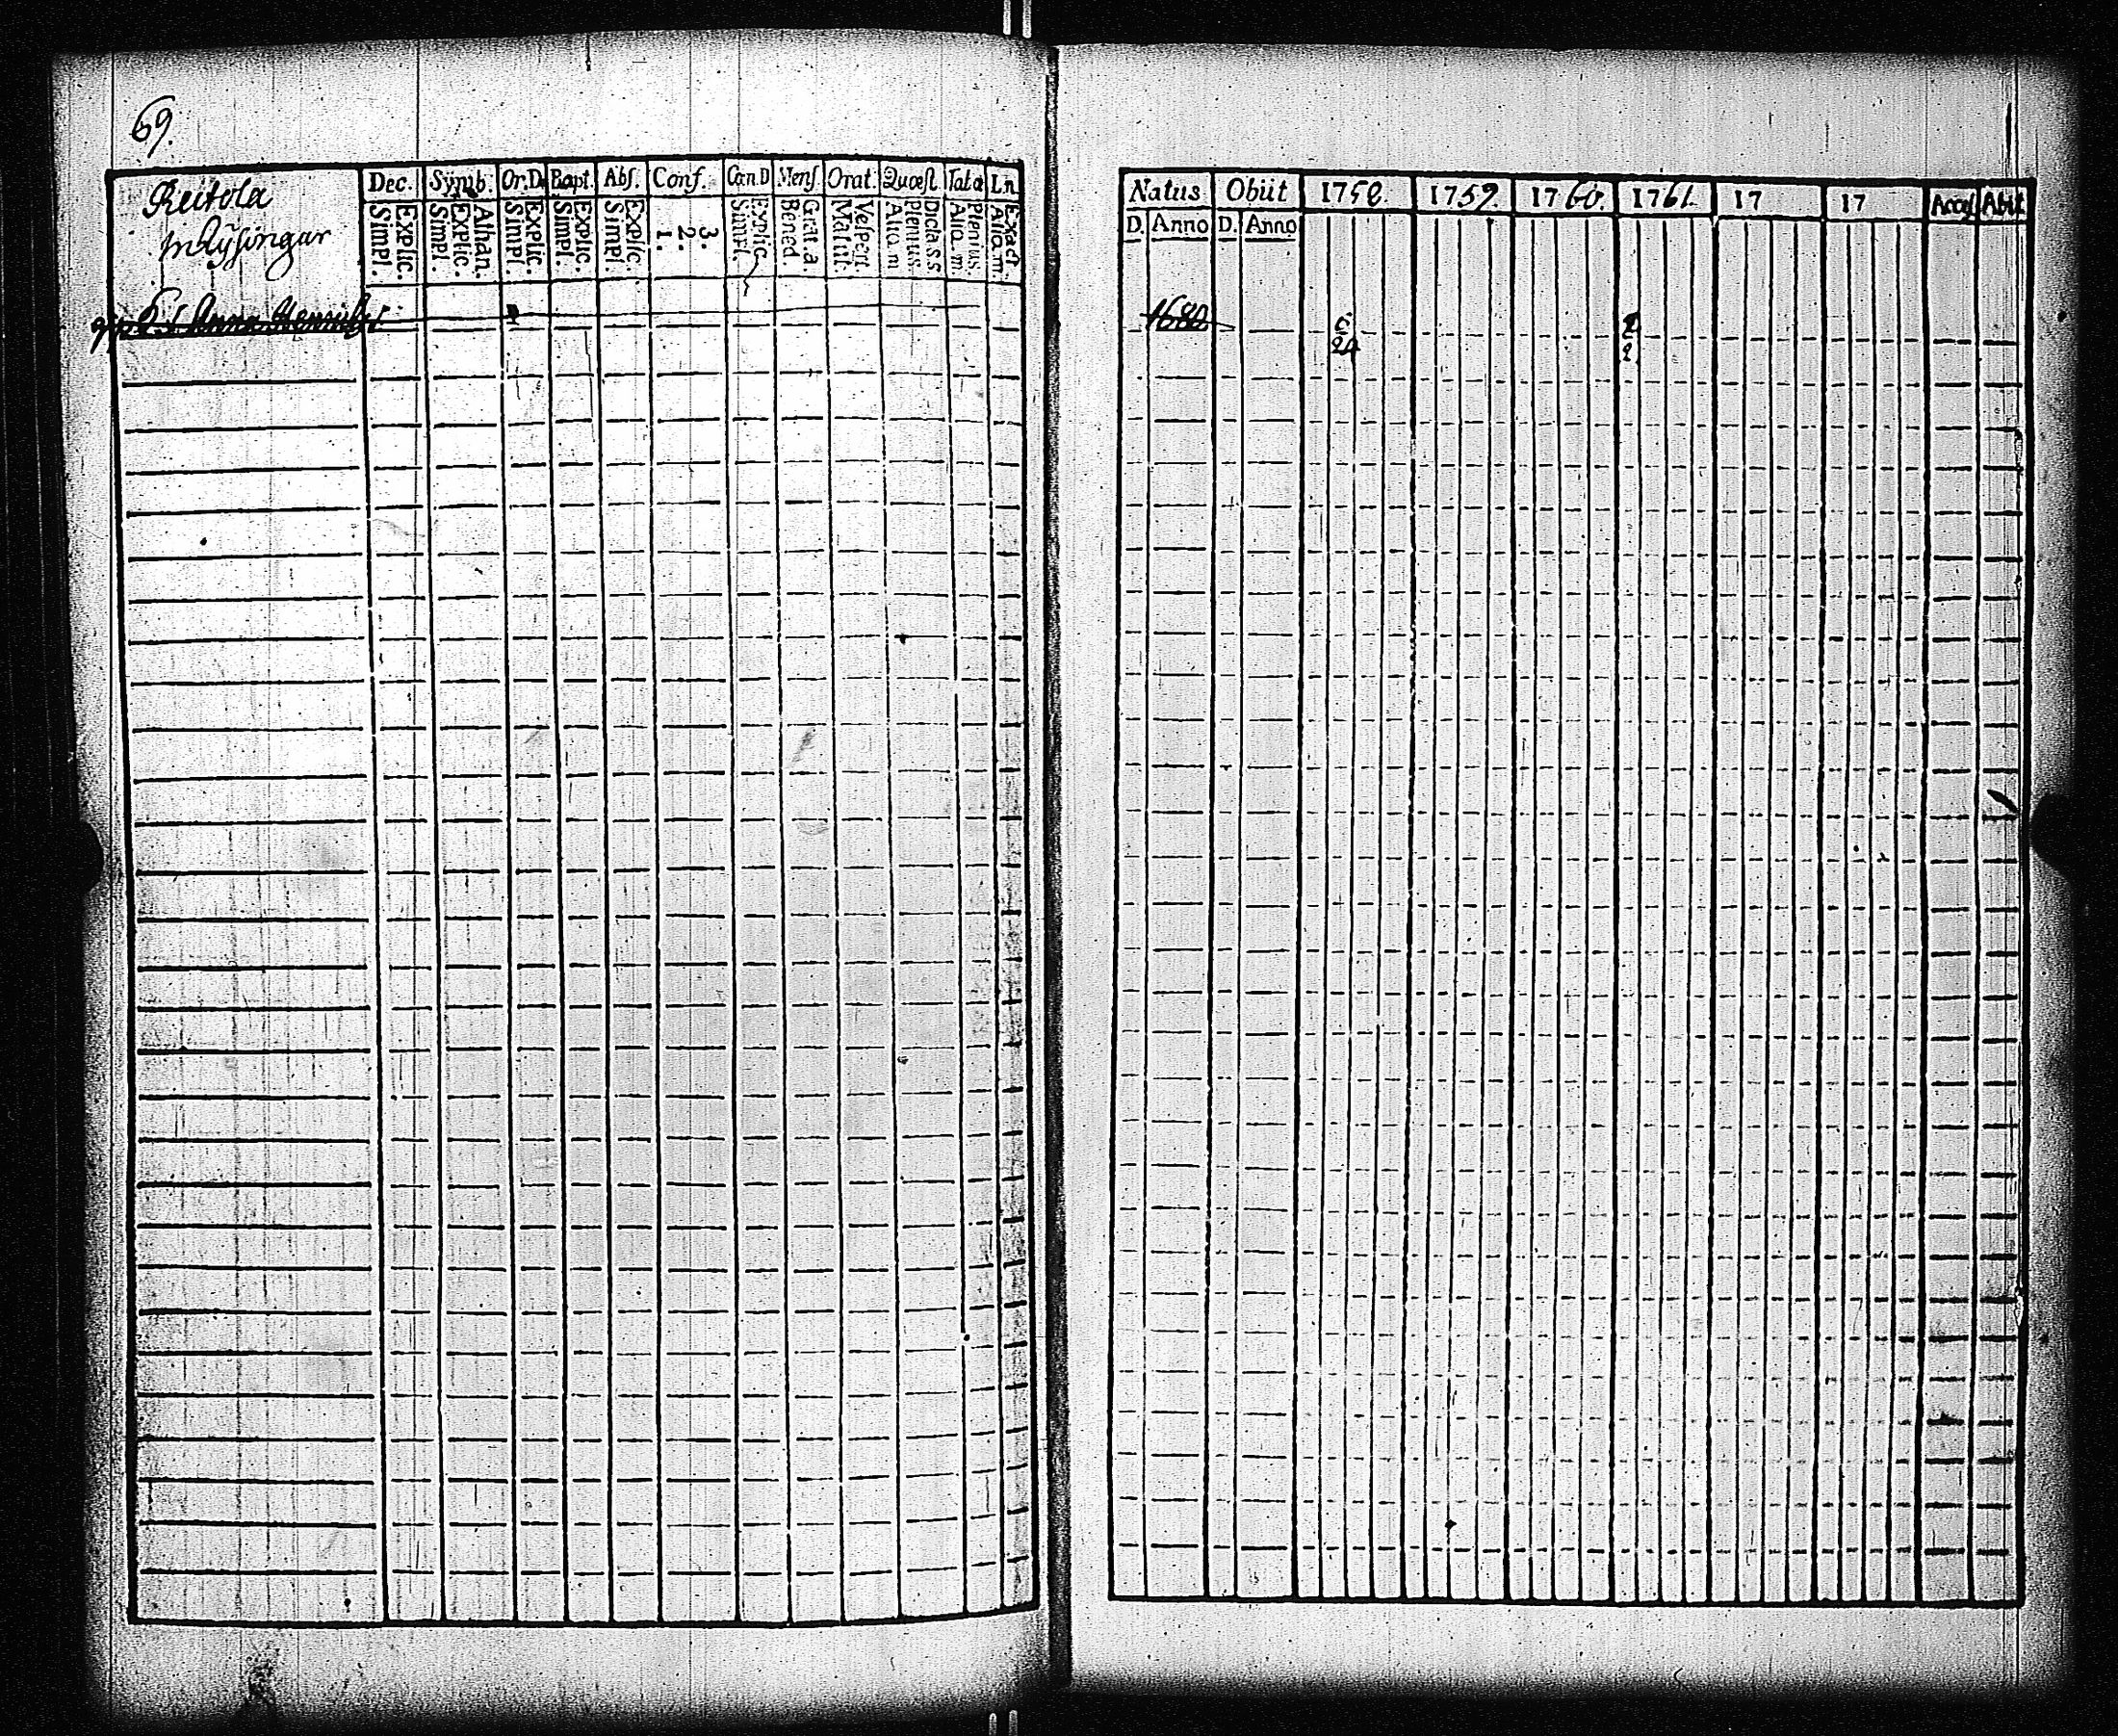 69.
Reitola
Inhysingar
Dec. Symb. Or.D. Bapt. Abs. Conf. Can.D Mens Orat. Quæst. Tab.œ Ln
Simpl. Explic. Simpl. Explic. Athan. Simpl. Explic. Simpl. Explic. Simpl. Explic. 1. 2. 3. Simpl. Explic. Bened. Grat.a. Matut. Vespert. Aliq.m Plenius. Dicta.s.s Aliq.m. Plenius. Aliq.m. Exact
Anna Henriks
Natus Obiit 1758. 1759. 1760. 1761. 17 17 Acces Abit
D. Anno D. Anno
1680
6 2
24 2